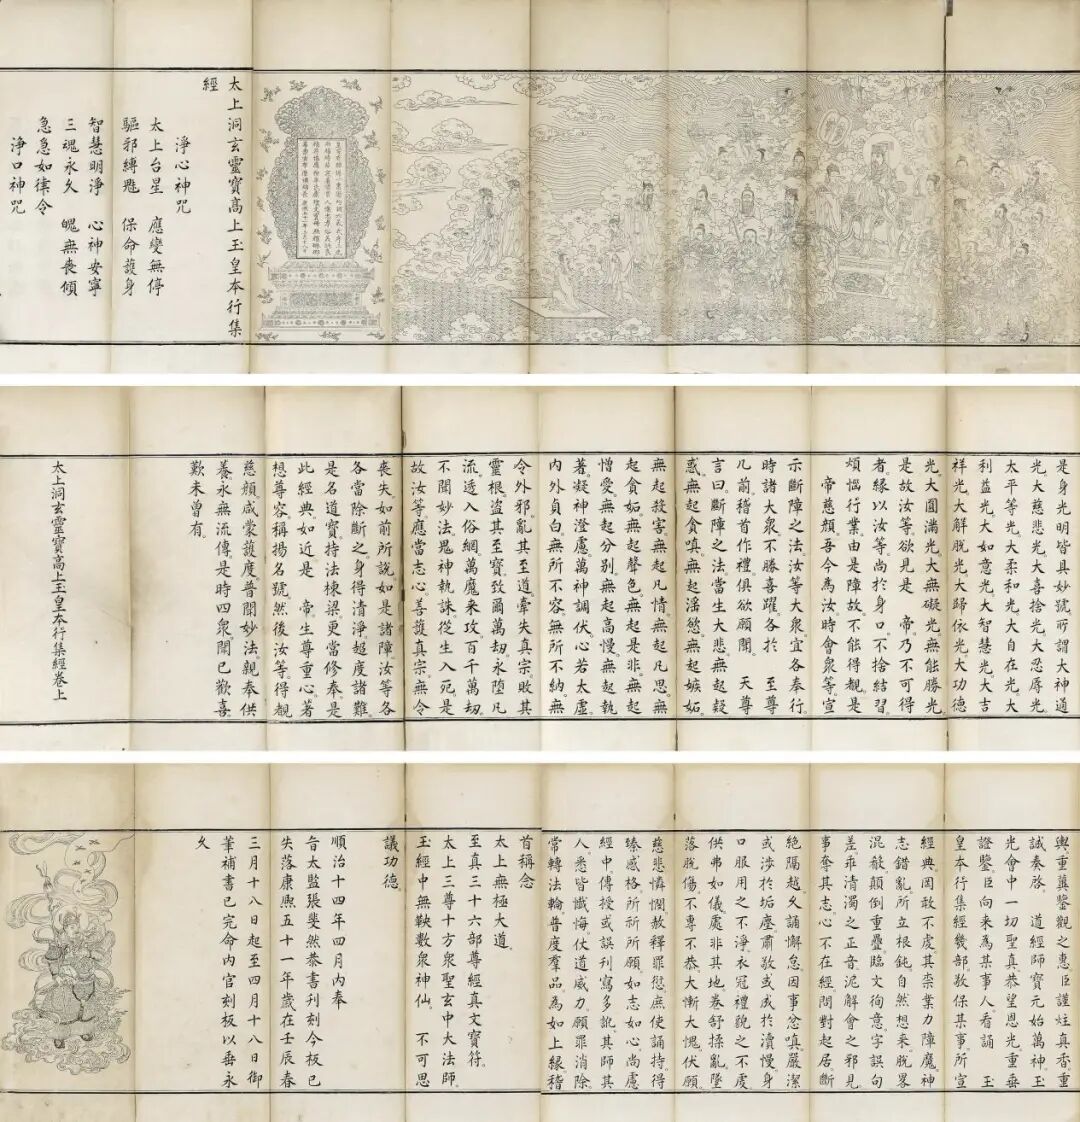 太上洞玄靈寶高上玉皇本行集
經
淨心神咒
太上台星　應變無停
驅邪縛魅　保命護身
智慧明淨　心神安寧
三魂永久　魄無喪傾
急急如律令
淨口神咒
是身光明皆具妙號所謂大神通
光大慈悲光大喜捨光大忍辱光
太平等光大柔和光大自在光大
利益光大如意光大智慧光大吉
祥光大解脫光大歸依光大功德
光大圓滿光大無礙光無能勝光
是故汝等欲見是　帝乃不可得
者緣以汝等尚於身口不捨結習
煩惱行業由是障故不能得覩是
帝慈顏吾今為汝時會衆等宣
示斷障之法汝等大衆宜各奉行
時諸大衆不勝喜躍各於　至尊
几前稽首作禮俱欲願聞　天尊
言曰斷障之法當生大悲無起疑
惑無起貪嗔無起滛慾無起嫉妬
無起殺害無起凡情無起凡思無
起貪妬無起聲色無起是非無起
憎愛無起分別無起高慢無起執
著凝神澄慮萬神調伏心若太虛
內外貞白無所不容無所不納無
令外邪亂其至道牽失真宗敗其
靈根盜其至寶致爾萬劫永墮凡
流透入俗網萬魔來攻百千萬劫
不聞妙法鬼神執誅從生入死是
故汝等應當志心善護真宗無令
喪失如前所說如是諸障汝等各
各當除斷之身得清淨超度諸難
是名道寶持法棟梁更當修奉是
此經典如近是　帝生尊重心著
想尊容稱揚名號然後汝等得覩
慈顏咸蒙護度普聞妙法親奉供
養永無流傳是時四衆聞已歡喜
歎未曾有
太上洞玄靈寶高上玉皇本行集經卷上
輿重冀鑒觀之惠臣謹炷真香重
誠奏啓　道經師寶元始萬神玉
光會中一切聖真恭望恩光重垂
證鑒臣向來為某事人看誦　玉
皇本行集經幾部敬保某事所宣
經典罔敢不虔其柰業力障魔神
志錯亂所立根鈍自然想來脫畧
混骰顛倒重疊臨文徇意字誤句
差乖清濁之正音泥解會之邪見
事奪其志心不在經問對起居斷
絕隔越久誦懈怠因事忿嗔嚴潔
或涉於垢塵肅敬或威於瀆慢身
口服用之不淨衣冠禮貌之不虔
供弗如儀處非其地卷舒揉亂墜
落脫傷不專不恭大慚大愧伏願
慈悲憐憫赦釋罪愆庶使誦持得
臻感格所祈所願如志如心尚慮
經中傳授或誤刊寫多訛其師其
人悉皆懺悔仗道威力願罪消除
常轉法輪普度羣品為如上緣稽
首稱念
太上無極大道
至真三十六部尊經真文寶符
太上三尊十方衆聖玄中大法師
玉經中無鞅數衆神仙　不可思
議功德
順治十四年四月內奉
旨太監張斐然恭書刊刻今板已
失落康熙五十一年歲在壬辰春
三月十八日起至四月十八日御
筆補書已完命內官刻板以垂永
久